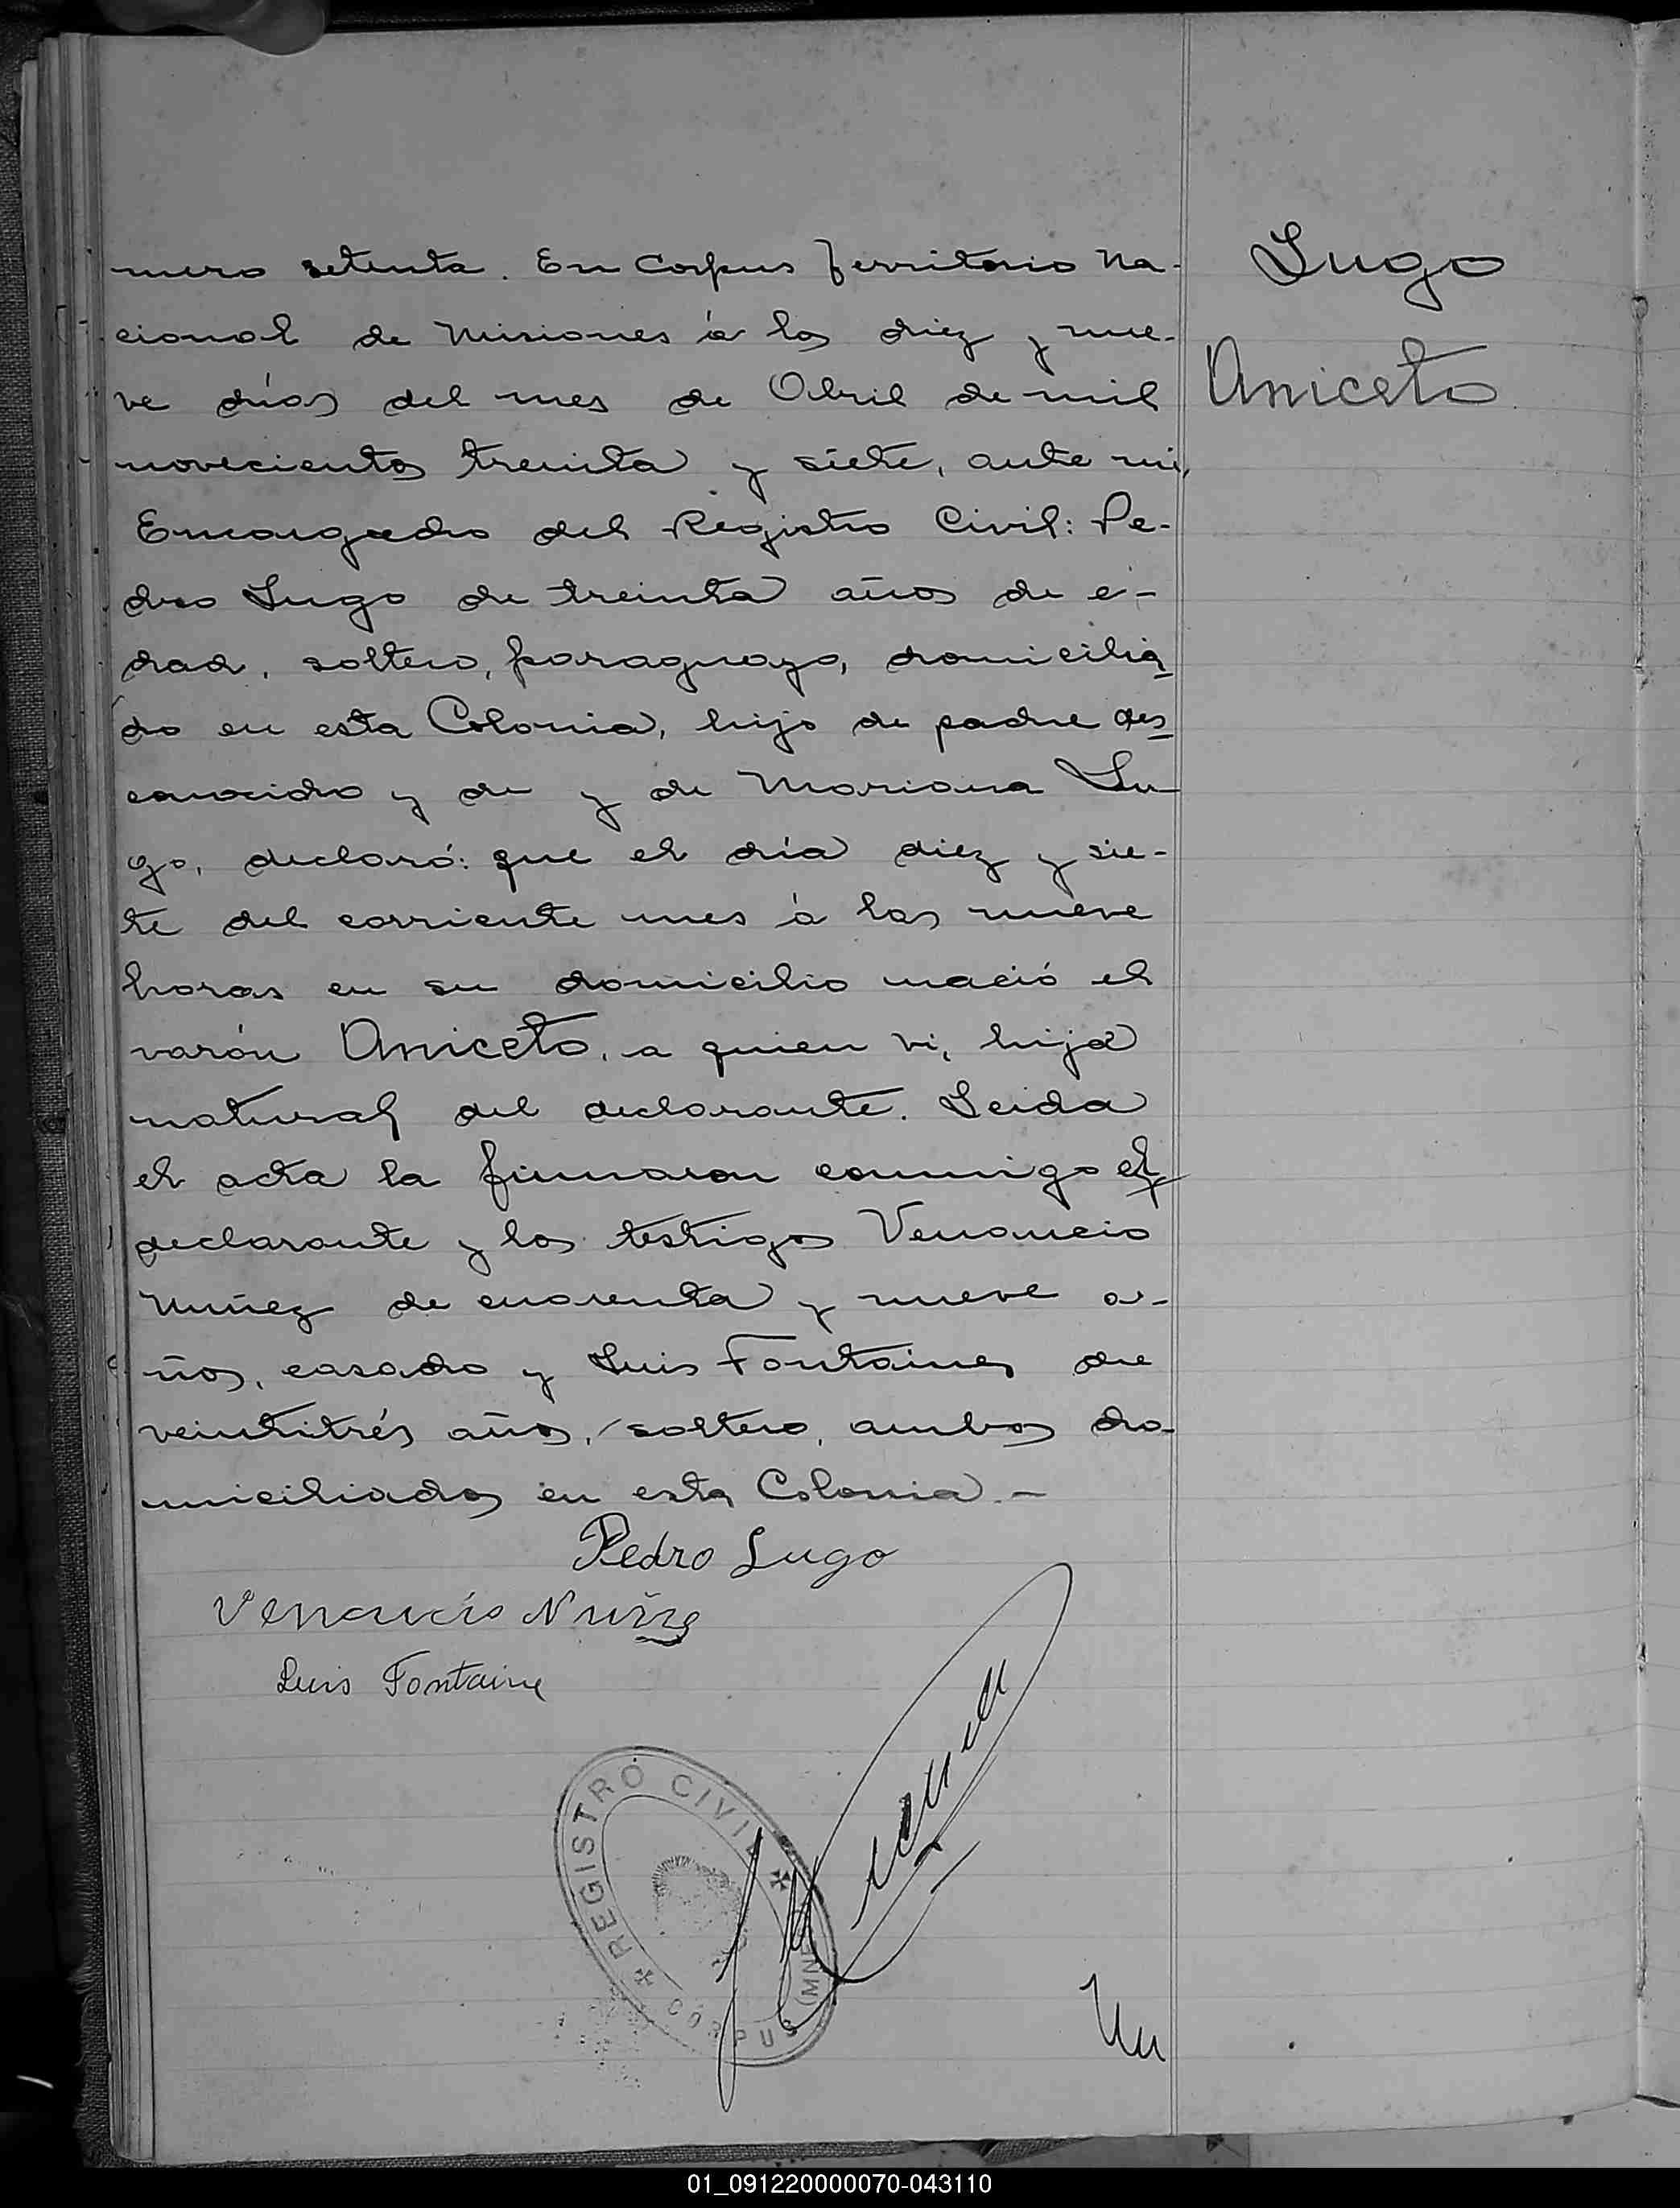 mero setenta. En Corpus Territorio Na-
cional de Misiones á los diez y nue-
ve días del mes de Abril de mil
novecientos treinta y siete, ante mi,
Encargado del Registro Civil: Pe-
dro Lugo de treinta años de e-
dad, soltero, paraguayo, domicilia
do en esta Colonia, hijo de padre des
conocido y de y de Mariana Lu
go, declaró: que el día diez y sie-
te del corriente mes á las nueve
horas en su domicilio nació el
varón Aniceto, a quien vi, hijo
natural del declarante. Leida
el acta la firmaron conmigo el
declarante y los testigos Venancio
Nuñez de cuarenta y nueve a-
ños, casado y Luis Fontaines de
veintitrés años, soltero, ambos do-
miciliados en esta Colonia.-
Lugo
Aniceto
Pedro Lugo
Venancio Nuñez
Luis Fontaine
REGISTRO CIVIL
CORPUS (MNES)
Nu
01_091220000070-043110